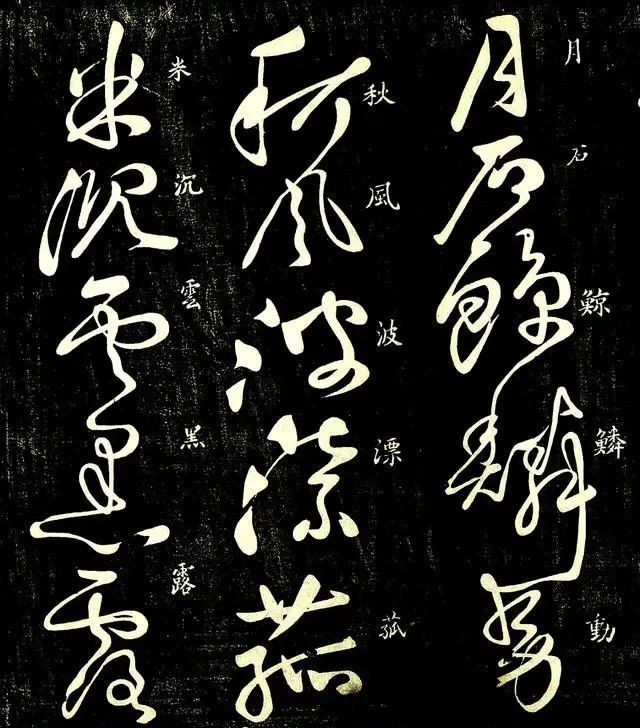 月石鯨鱗動
秋風波漂菰
米沉雲黑露